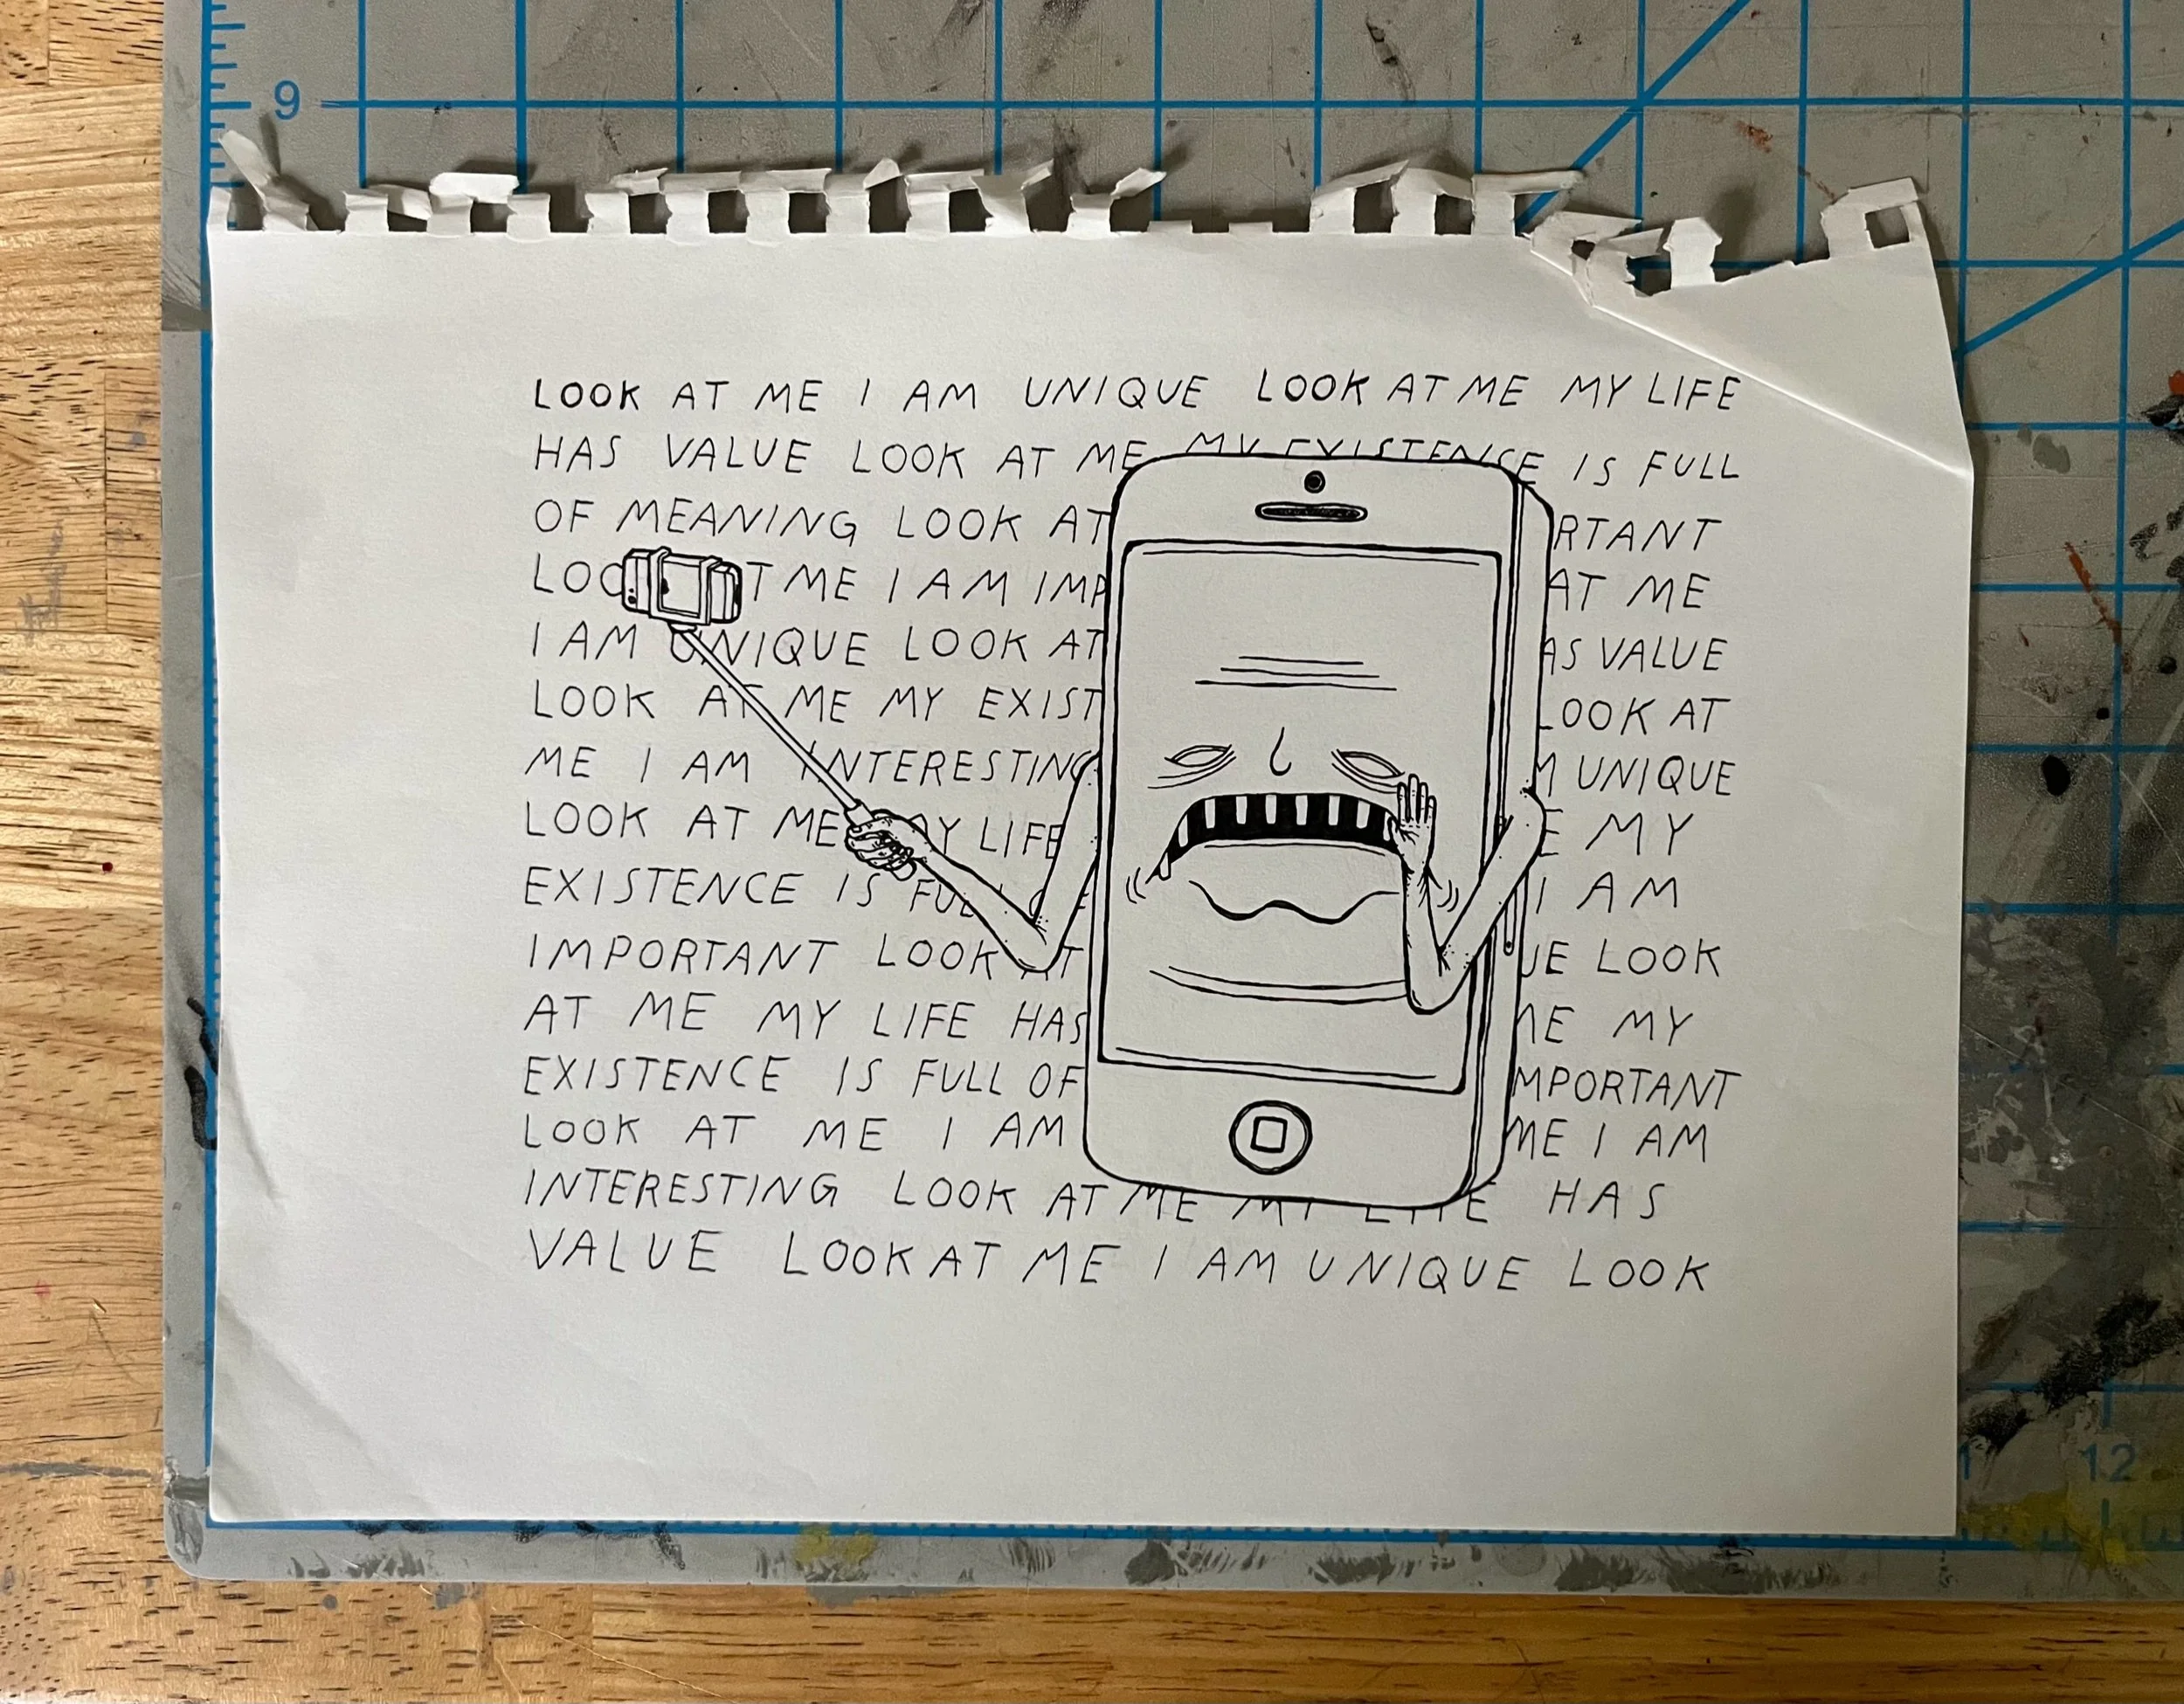 9
LOOK AT ME I AM UNIQUE LOOK AT ME MY LIFE
HAS VALUE LOOK AT ME MY EXISTENCE IS FULL
OF MEANING LOOK AT RTANT
LOO T ME I AM IMP AT ME
I AM UNIQUE LOOK AT AS VALUE
LOOK AT ME MY EXIST LOOK AT
ME I AM INTERESTING M UNIQUE
LOOK AT ME MY LIFE E MY
EXISTENCE IS FULL OF I AM
IMPORTANT LOOK AT UE LOOK
AT ME MY LIFE HAS ME MY
EXISTENCE IS FULL OF MPORTANT
LOOK AT ME I AM ME I AM
INTERESTING LOOK AT ME MY LIFE HAS
VALUE LOOK AT ME I AM UNIQUE LOOK
12